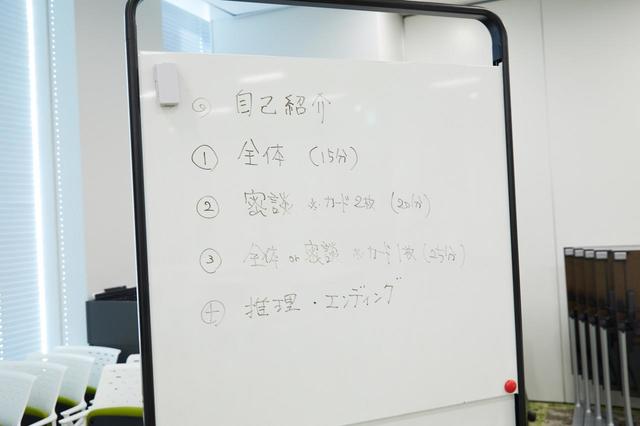 ⓪ 自己紹介
① 全体 (15分)
② 密談 ※カード2枚 (20分)
③ 全体 or 密談 ※カード1枚 (25分)
④ 推理・エンディング